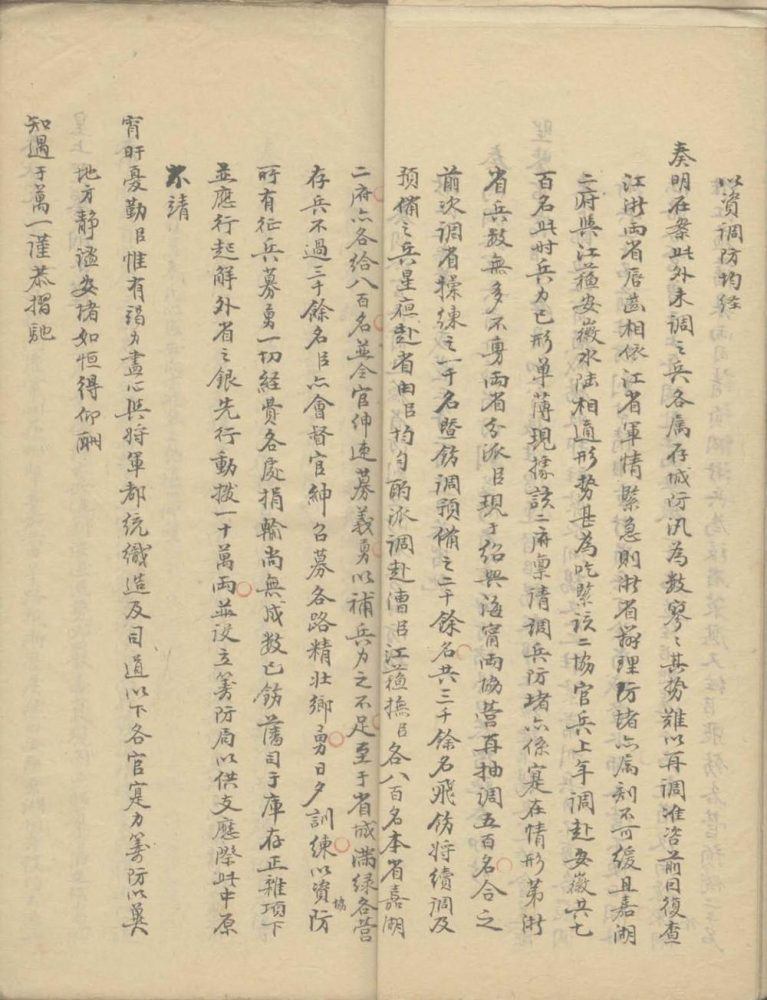 以資調防均經
奏明在案此外未調之兵各属存城防汛為数寥々其势難以再調准咨前因復查
江浙両省唇齒相依江省軍情緊急則浙省辦理防堵亦属刻不可緩且嘉湖
二府與江蘓安徽水陆相通形势甚為吃緊該二協官兵上年調赴安徽共七
百名此时兵力已形单薄現據該二府禀请調兵防堵亦係寔在情形第浙
省兵数無多不旉両省分派臣現于紹興海甯両協营再抽調五百名合之
前次調省操練之一千名暨飭調預俻之二千餘名共三千餘名飛飭将續調及
预俻之兵星夜赴省由臣均匀酌派調赴漕臣江蘓撫臣各八百名本省嘉湖
二府亦各给八百名並令官绅速募義勇以補兵力之不足至于省城满绿各营
存兵不過三千餘名臣亦會督官紳召募各路精壮鄉勇日夕訓練以資防
協
所有征兵募勇一切経费各處捐輸尚無成数已飭藩司于庫存正雜項下
並應行起解外省之銀先行動拨一十萬両並设立筹防局以供支應際此中原
不靖
宵旰憂勤臣惟有竭力盡心與将軍都统織造及司道以下各官寔力筹防以冀
地方静谧安堵如恒得仰酬
知遇于萬一謹恭摺馳